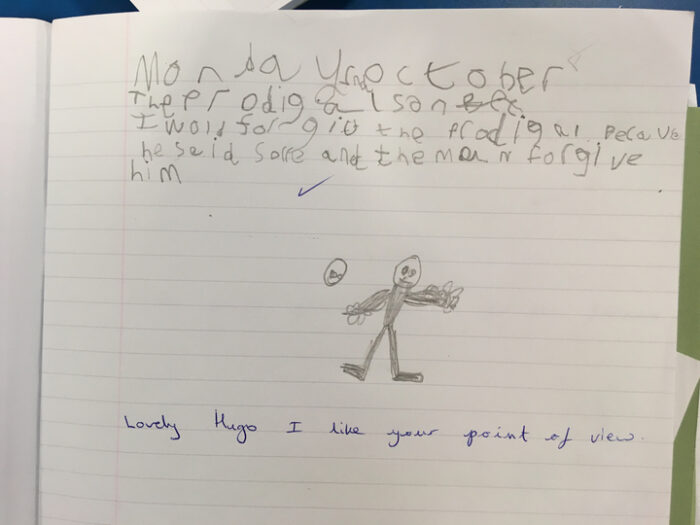 Monday 4rnd october
The prodigal son
I wold forgiv the prodigal because
he said sore and the man forgive
him
Lovely Hugo I like your point of view.